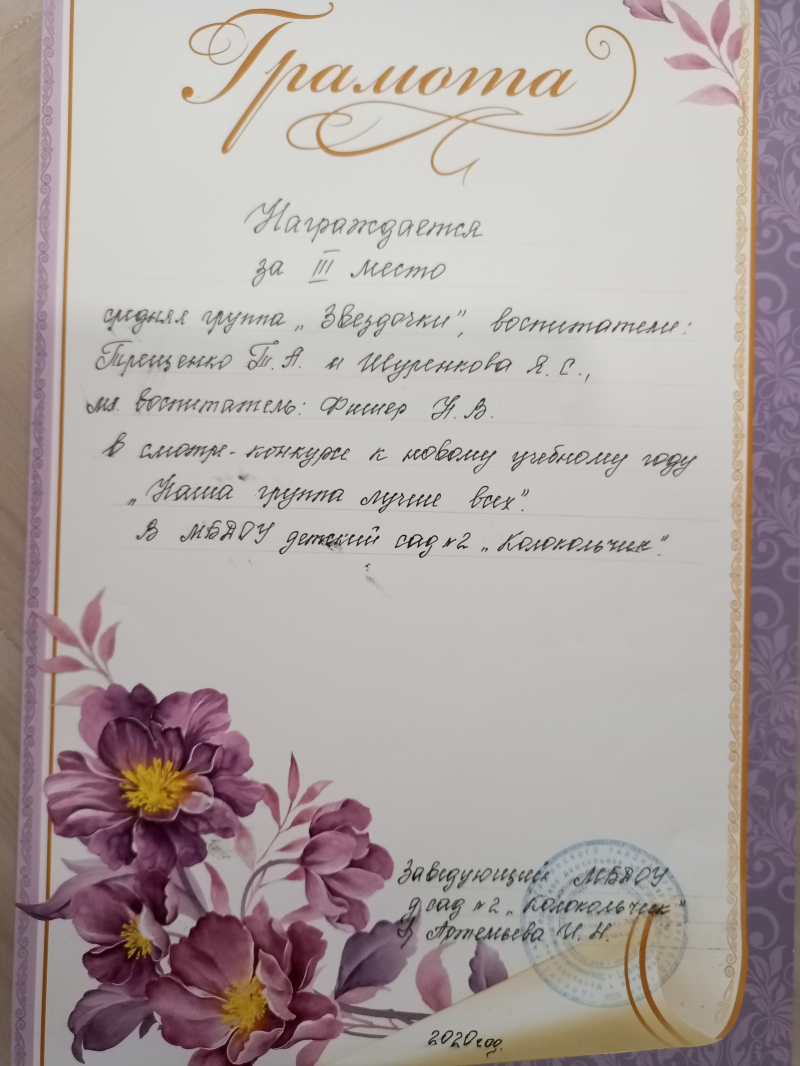 Грамота
Награждается
за III место
средняя группа „Звездочки", воспитатели:
Трещенко Т.А. и Шуренкова Я.С.,
мл. воспитатель: Фишер Н.В.
в смотре-конкурсе к новому учебному году
„Наша группа лучше всех".
В МБДОУ детский сад №2 „Колокольчик".
Заведующий МБДОУ
д/сад №2 „Колокольчик"
Артемьева И.Н.
2020 год.